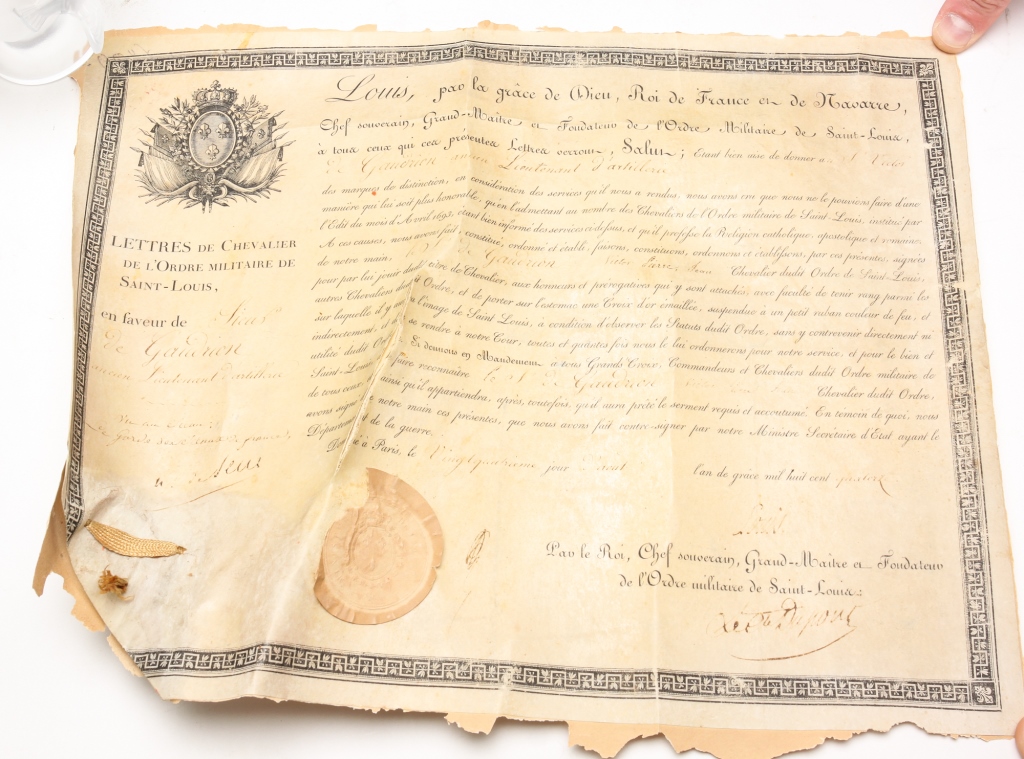 Louis, par la grâce de Dieu, Roi de France et de Navarre,
Chef souverain, Grand-Maître et Fondateur de l'Ordre Militaire de Saint-Louis,
à tous ceux qui ces présentes Lettres verront, Salut; Étant bien aise de donner au S. Victor
de Gaudrion ancien Lieutenant d'artillerie
des marques de distinction, en considération des services qu'il nous a rendus, nous avons cru que nous ne le pouvions faire d'une
manière qui lui soit plus honorable, qu'en l'admettant au nombre des Chevaliers de l'Ordre militaire de Saint-Louis, institué par
l'Edit du mois d'Avril 1693, étant bien informé des services ci-dessus, et qu'il professe la Religion catholique, apostolique et romaine.
A ces causes, nous avons fait, constitué, ordonné et établi, faisons, constituons, ordonnons et établissons, par ces présentes, signées
de notre main, de Gaudrion Chevalier dudit Ordre de Saint-Louis,
pour par lui jouir dudit titre de Chevalier, aux honneurs et prérogatives qui y sont attachés, avec faculté de tenir rang parmi les
autres Chevaliers dudit Ordre, et de porter sur l'estomac une Croix d'or émaillée, suspendue à un petit ruban couleur de feu, et
sur laquelle il y aura l'image de Saint Louis, à condition d'observer les Statuts dudit Ordre, sans y contrevenir directement ni
indirectement, et de se rendre à notre Cour, toutes et quantes fois nous le lui ordonnerons pour notre service, et pour le bien et
utilité dudit Ordre. Si donnons en Mandement à tous Grands Croix, Commandeurs et Chevaliers dudit Ordre militaire de
Saint-Louis, faire reconnaître le S. de Gaudrion Chevalier dudit Ordre,
de tous ceux ainsi qu'il appartiendra, après, toutefois, qu'il aura prêté le serment requis et accoutumé. En témoin de quoi, nous
avons signé de notre main ces présentes, que nous avons fait contre-signer par notre Ministre Secrétaire d'Etat ayant le
Département de la guerre.
Donné à Paris, le Vingt quatrième jour d'aout l'an de grâce mil huit cent quatorze
Louis
Par le Roi, Chef souverain, Grand-Maître et Fondateur
de l'Ordre militaire de Saint-Louis:
Le Cte Dupont
LETTRES DE CHEVALIER
DE L'ORDRE MILITAIRE DE
SAINT-LOUIS,
en faveur de
de Gaudrion
ancien Lieutenant d'artillerie